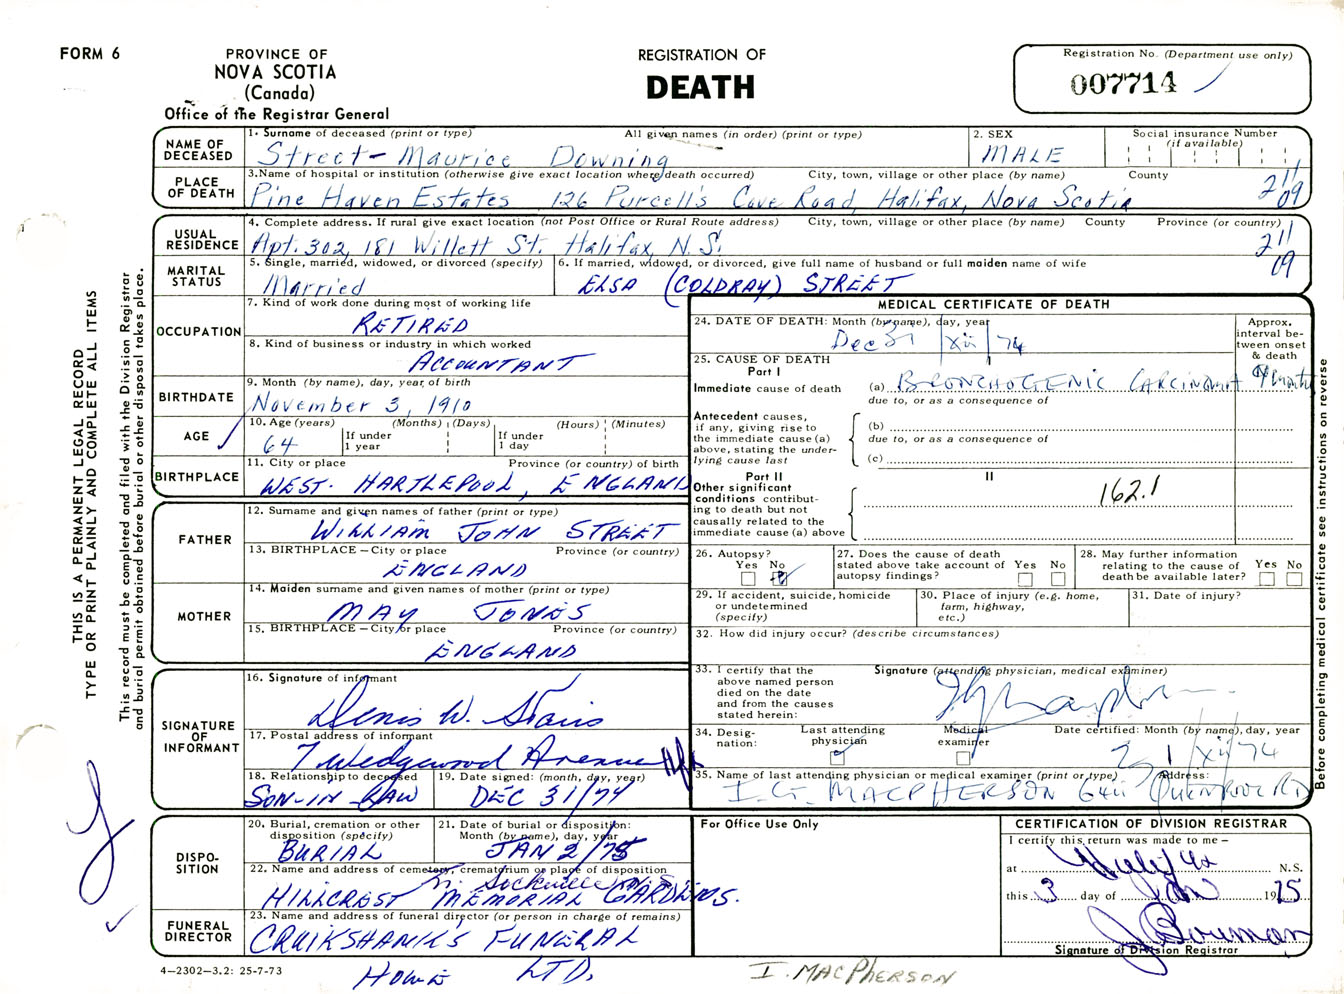 FORM 6
PROVINCE OF
NOVA SCOTIA
(Canada)
Office of the Registrar General
REGISTRATION OF
DEATH
Registration No. (Department use only)
007714
NAME OF DECEASED
1. Surname of deceased (print or type) All given names (in order) (print or type)
Street - Maurice Downing
2. SEX
MALE
Social insurance Number
(if available)
PLACE OF DEATH
3. Name of hospital or institution (otherwise give exact location where death occurred) City, town, village or other place (by name) County
Pine Haven Estates 126 Purcell's Cove Road, Halifax, Nova Scotia
211
09
USUAL RESIDENCE
4. Complete address. If rural give exact location (not Post Office or Rural Route address) City, town, village or other place (by name) County Province (or country)
Apt. 302, 181 Willett St. Halifax, N.S.
211
09
MARITAL STATUS
5. Single, married, widowed, or divorced (specify)
Married
6. If married, widowed, or divorced, give full name of husband or full maiden name of wife
ELSA (COLDRAY) STREET
OCCUPATION
7. Kind of work done during most of working life
RETIRED
8. Kind of business or industry in which worked
ACCOUNTANT
BIRTHDATE
9. Month (by name), day, year of birth
November 3, 1910
AGE
10. Age (years) (Months) (Days) (Hours) (Minutes)
64 If under 1 year If under 1 day
BIRTHPLACE
11. City or place Province (or country) of birth
WEST. HARTLEPOOL, ENGLAND
FATHER
12. Surname and given names of father (print or type)
WILLIAM JOHN STREET
13. BIRTHPLACE - City or place Province (or country)
ENGLAND
MOTHER
14. Maiden surname and given names of mother (print or type)
MAY JONES
15. BIRTHPLACE - City or place Province (or country)
ENGLAND
SIGNATURE OF INFORMANT
16. Signature of informant
Denis W. Stairs
17. Postal address of informant
7 Wedgewood Avenue Hfx
18. Relationship to deceased
SON-IN LAW
19. Date signed: (month, day, year)
DEC 31/74
DISPOSITION
20. Burial, cremation or other disposition (specify)
BURIAL
21. Date of burial or disposition: Month (by name), day, year
JAN 2/75
22. Name and address of cemetery, crematorium or place of disposition
HILLCREST MEMORIAL GARDENS.
Sackville N.S
FUNERAL DIRECTOR
23. Name and address of funeral director (or person in charge of remains)
CRUIKSHANK'S FUNERAL
HOME LTD.
4-2302-3.2: 25-7-73
MEDICAL CERTIFICATE OF DEATH
24. DATE OF DEATH: Month (by name), day, year
Dec 31 xii 74
Approx. interval between onset & death
25. CAUSE OF DEATH
Part I
Immediate cause of death
(a) BRONCHOGENIC CARCINOMA
due to, or as a consequence of
Antecedent causes, if any, giving rise to the immediate cause (a) above, stating the underlying cause last
(b)
due to, or as a consequence of
(c)
Part II
II
Other significant conditions contributing to death but not causally related to the immediate cause (a) above
162.1
26. Autopsy?
Yes No
27. Does the cause of death stated above take account of autopsy findings?
Yes No
28. May further information relating to the cause of death be available later?
Yes No
29. If accident, suicide, homicide or undetermined (specify)
30. Place of injury (e.g. home, farm, highway, etc.)
31. Date of injury?
32. How did injury occur? (describe circumstances)
33. I certify that the above named person died on the date and from the causes stated herein:
Signature (attending physician, medical examiner)
34. Designation:
Last attending physician
Medical examiner
Date certified: Month (by name), day, year
31 xii 74
35. Name of last attending physician or medical examiner (print or type) Address:
I.G. MACPHERSON
For Office Use Only
CERTIFICATION OF DIVISION REGISTRAR
I certify this return was made to me -
at Halifax N.S.
this 3 day of Jan 1975
Signature of Division Registrar
I. MACPHERSON
THIS IS A PERMANENT LEGAL RECORD
TYPE OR PRINT PLAINLY AND COMPLETE ALL ITEMS
This record must be completed and filed with the Division Registrar
and burial permit obtained before burial or other disposal takes place.
Before completing medical certificate see instructions on reverse